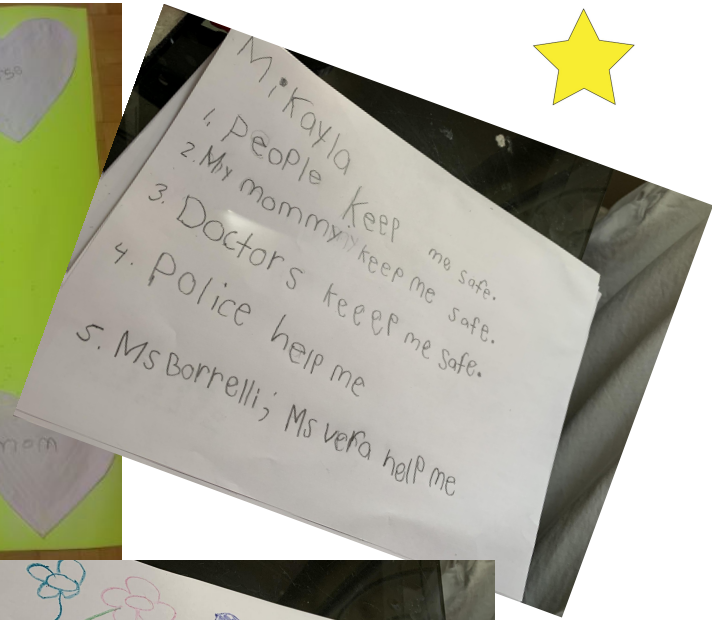 Mikayla
1. People keep me safe.
2. My mommy keep me safe.
3. Doctors keeep me safe.
4. Police help me
5. Ms Borrelli; Ms vera help me
mom